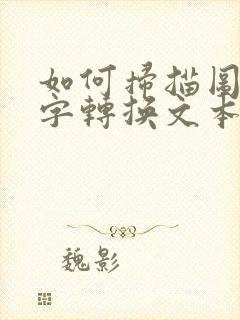 如何掃描圖
字轉換文本
魏影